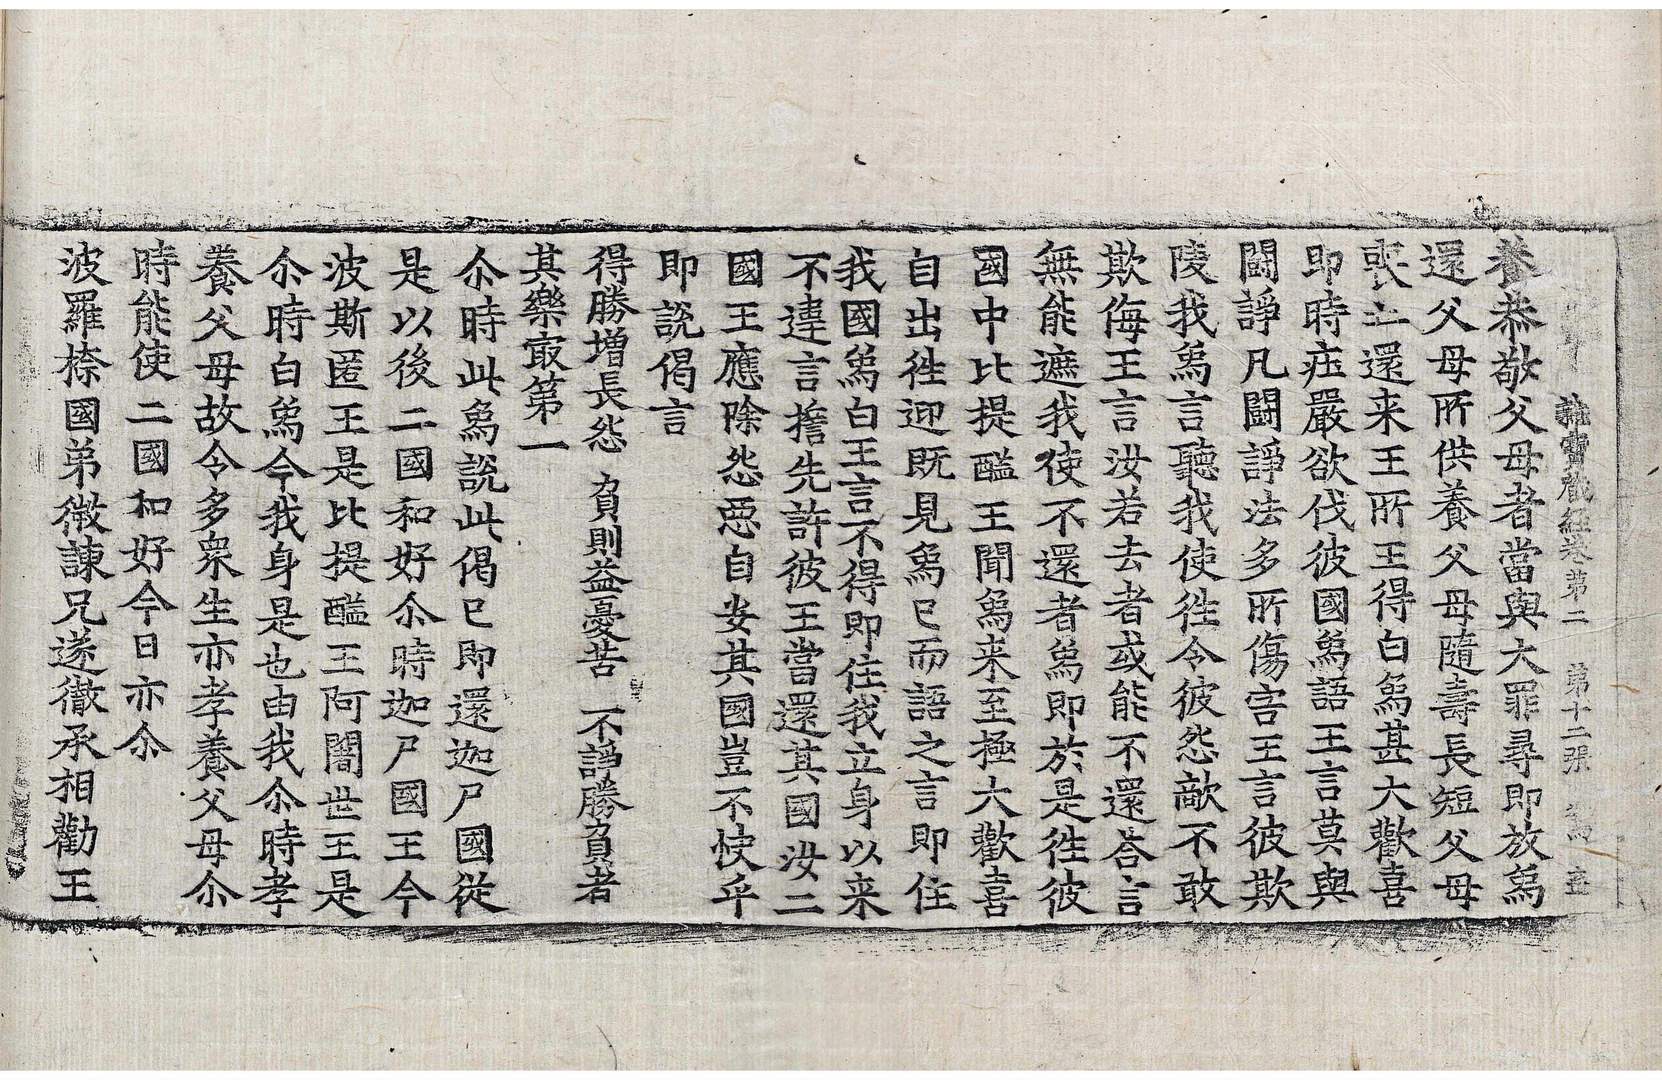 雜寶藏經卷第二 第十二張 爲
養恭敬父母者當與大罪尋即放爲
還父母所供養父母隨壽長短父母
喪亡還来王所王得白爲甚大歡喜
即時症嚴欲伐彼國爲語王言莫與
闘諍凡闘諍法多所傷害王言彼欺
陵我爲言聽我使徃令彼怨敵不敢
欺侮王言汝若去者或能不還荅言
無能遮我使不還者爲即於是徃彼
國中比提醯王聞爲来至極大歡喜
自出徃迎既見爲已而語之言即住
我國爲白王言不得即住我立身以来
不違言擔先許彼王當還其國汝二
國王應除怨惡自安其國豈不快乎
即說偈言
得勝増長怨 負則益憂苦 不諍勝負者
其樂㝡第一
尒時此爲說此偈已即還迦尸國從
是以後二國和好尒時迦尸國王今
波斯匿王是比提醯王阿闍世王是
尒時白爲今我身是也由我尒時孝
養父母故令多衆生亦孝養父母尒
時能使二國和好今日亦尒
波羅㮈國弟微諫兄遂徹承相勸王